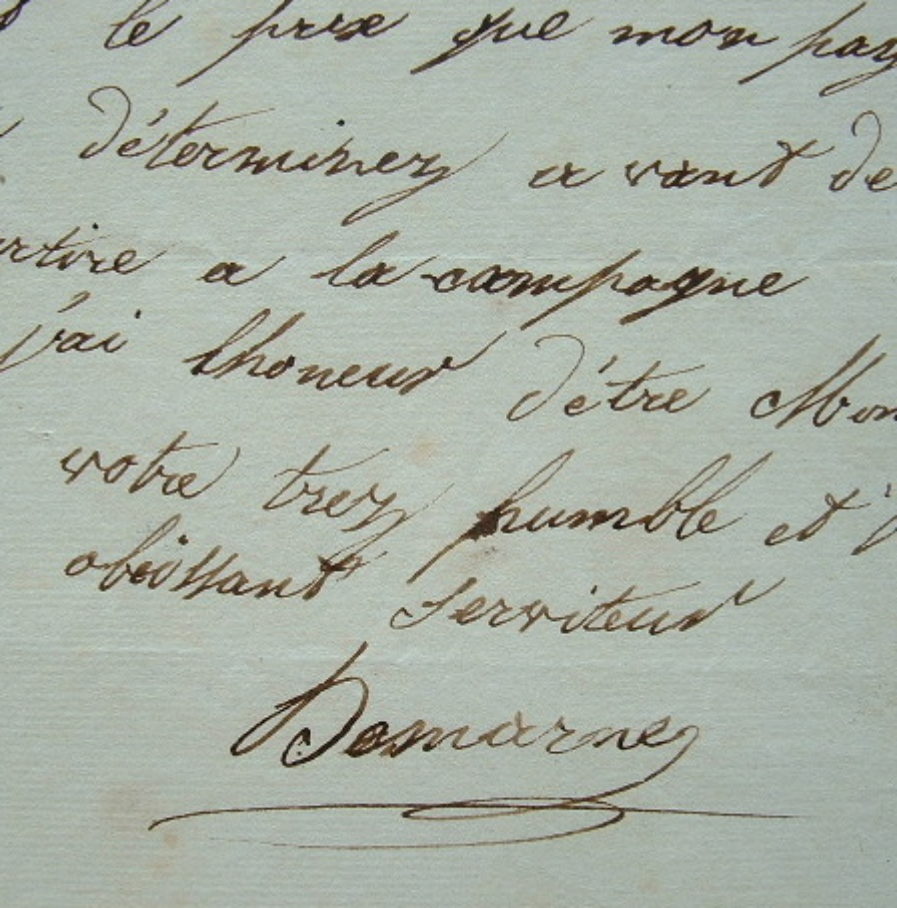 le prix que mon pay
déterminez a vant de
rtire a la campagne
j'ai lhoneur d'étre Mon
votre trez humble et
obeissant serviteur
Demarne